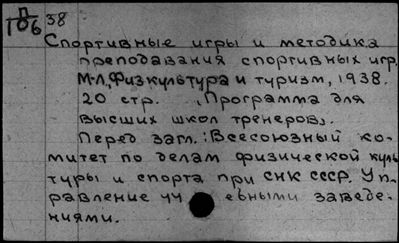 П
106 38
Спортивные игры и методика
преподавания спортивных игр.
М-Л, Физкультура и туризм, 1938.
20 стр. (Программа для
высших школ тренеров).
Перед загл.: Всесоюзный ко-
митет по делам физической куль
туры и спорта при СНК СССР. Уп-
равление уч ебными заведе-
ниями.